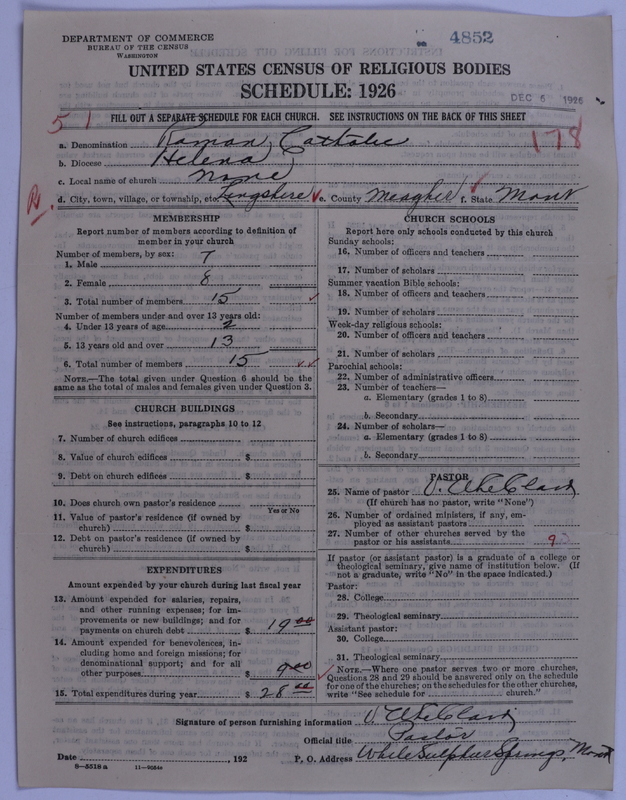 DEPARTMENT OF COMMERCE
BUREAU OF THE CENSUS
WASHINGTON
4852
UNITED STATES CENSUS OF RELIGIOUS BODIES
SCHEDULE: 1926
DEC 6 1926
51
FILL OUT A SEPARATE SCHEDULE FOR EACH CHURCH. SEE INSTRUCTIONS ON THE BACK OF THIS SHEET
178
a. Denomination Roman Catholic
b. Diocese Helena
c. Local name of church None
d. City, town, village, or township, etc. Ringshire e. County Meagher f. State Mont
R.
MEMBERSHIP
Report number of members according to definition of
member in your church
Number of members, by sex:
1. Male 7
2. Female 8
3. Total number of members 15
Number of members under and over 13 years old:
4. Under 13 years of age 2
5. 13 years old and over 13
6. Total number of members 15
NOTE.—The total given under Question 6 should be the
same as the total of males and females given under Question 3.
CHURCH BUILDINGS
See instructions, paragraphs 10 to 12
7. Number of church edifices
8. Value of church edifices $
9. Debt on church edifices $
10. Does church own pastor's residence
Yes or No
11. Value of pastor's residence (if owned by
church) $
12. Debt on pastor's residence (if owned by
church) $
EXPENDITURES
Amount expended by your church during last fiscal year
13. Amount expended for salaries, repairs,
and other running expenses; for im-
provements or new buildings; and for
payments on church debt $ 19 00
14. Amount expended for benevolences, in-
cluding home and foreign missions; for
denominational support; and for all
other purposes $ 9 00
15. Total expenditures during year $ 28 00
CHURCH SCHOOLS
Report here only schools conducted by this church
Sunday schools:
16. Number of officers and teachers
17. Number of scholars
Summer vacation Bible schools:
18. Number of officers and teachers
19. Number of scholars
Week-day religious schools:
20. Number of officers and teachers
21. Number of scholars
Parochial schools:
22. Number of administrative officers
23. Number of teachers—
a. Elementary (grades 1 to 8)
b. Secondary
24. Number of scholars—
a. Elementary (grades 1 to 8)
b. Secondary
PASTOR
25. Name of pastor
(If church has no pastor, write "None")
26. Number of ordained ministers, if any, em-
ployed as assistant pastors
27. Number of other churches served by the
pastor or his assistants 9
If pastor (or assistant pastor) is a graduate of a college or
theological seminary, give name of institution below. (If
not a graduate, write "No" in the space indicated.)
Pastor:
28. College
29. Theological seminary
Assistant pastor:
30. College
31. Theological seminary
NOTE.—Where one pastor serves two or more churches,
Questions 28 and 29 should be answered only on the schedule
for one of the churches; on the schedules for the other churches,
write "See schedule for church."
Signature of person furnishing information
Official title Pastor
Date , 192 P. O. Address White Sulphur Springs, Mont
8—5518 a 11—9084a